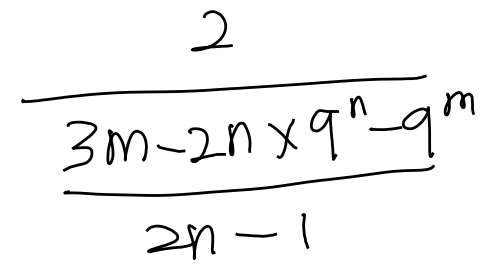 2
3m-2n×9ⁿ-9ᵐ
2n-1